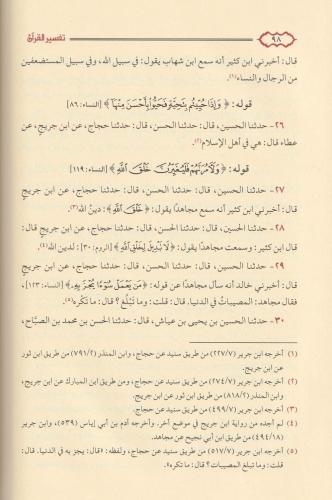 ٩٨
تفسير القرآن
قال: أخبرني ابن كثير أنه سمع ابن شهاب يقول: في سبيل الله، وفي سبيل المستضعفين
من الرجال والنساء(١).
قوله: ﴿وَإِذَا حُيِّيتُم بِتَحِيَّةٍ فَحَيُّوا بِأَحْسَنَ مِنْهَا﴾ [النساء: ٨٦]
٢٦- حدثنا الحسين، قال: حدثنا الحسن، قال: حدثنا حجاج، عن ابن جريج، عن
عطاء قال: هي في أهل الإسلام(٢).
قوله: ﴿وَلَآمُرَنَّهُمْ فَلَيُغَيِّرُنَّ خَلْقَ اللَّهِ﴾ [النساء: ١١٩]
٢٧- حدثنا الحسين، قال: حدثنا الحسن، قال: حدثنا حجاج، عن ابن جريج
قال: أخبرني ابن كثير أنه سمع مجاهدًا يقول: ﴿خَلْقَ اللَّهِ﴾: دينُ الله(٣).
٢٨- حدثنا الحسين، قال: حدثنا الحسن، قال: حدثنا حجاج، عن ابن جريج قال:
قال ابن كثير: وسمعت مجاهدًا يقول: ﴿لَا تَبْدِيلَ لِخَلْقِ اللَّهِ﴾ [الروم: ٣٠]: لدين الله(٤).
٢٩- حدثنا الحسين، قال: حدثنا الحسن، قال: حدثنا حجاج، عن ابن جريج
قال: أخبرني خالد أنه سأل مجاهدًا عن قوله: ﴿مَن يَعْمَلْ سُوءًا يُجْزَ بِهِ﴾ [النساء: ١٢٣]،
فقال مجاهد: المصيباتُ في الدنيا. قال: قلت: وما تَبْلُغ؟ قال: ما تَكْرَه(٥).
٣٠- حدثنا الحسين بن يحيى بن عياش، قال: حدثنا الحسن بن محمد بن الصبَّاح،
(١) أخرجه ابن جرير (٢٢٧/٧) من طريق سنيد عن حجاج، وابن المنذر (٧٩١/٢) من طريق ابن ثور
عن ابن جريج.
(٢) أخرجه ابن جرير (٢٧٤/٧) من طريق سنيد عن حجاج، ومن طريق ابن المبارك عن ابن جريج،
وابن المنذر (٨١٨/٢) من طريق ابن ثور عن ابن جريج.
(٣) أخرجه ابن جرير (٤٩٩/٧) من طريق سنيد عن حجاج.
(٤) لم أجده من رواية ابن جريج في موضع آخر. وأخرجه آدم بن أبي إياس (٥٣٩)، وابن جرير
(٤٩٤/١٨) من طريق ابن أبي نجيح عن مجاهد.
(٥) أخرجه ابن جرير (٥١٧/٧) من طريق سنيد عن حجاج، ولفظه: «قال: يجز به في الدنيا. قال:
قلت: وما تبلغ المصيبات؟ قال: ما تكره».